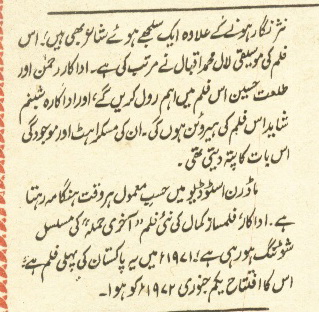 نثر نگار ہونے کے علاوہ ایک سلجھے ہوئے شاعر بھی ہیں؛ اس
فلم کی موسیقی لال محمد اقبال نے مرتب کی ہے۔ اداکار رحمٰن اور
طلعت حسین اس فلم میں اہم رول کریں گے، اور اداکارہ شبنم
شاید اس فلم کی ہیروئن ہوں گی۔ ان کی مسکراہٹ اور موجودگی
اس بات کا پتہ دیتی تھی۔
ماڈرن اسٹوڈیو میں حسبِ معمول ہر وقت ہنگامہ رہتا
ہے۔ اداکار/ فلمساز کمال کی نئی فلم "آخری حملہ" کی مسلسل
شوٹنگ ہو رہی ہے؛ ۱۹۷۱ء میں یہ پاکستان کی پہلی فلم ہے؛
اس کا افتتاح یکم جنوری ۱۹۷۲ء کو ہوا۔